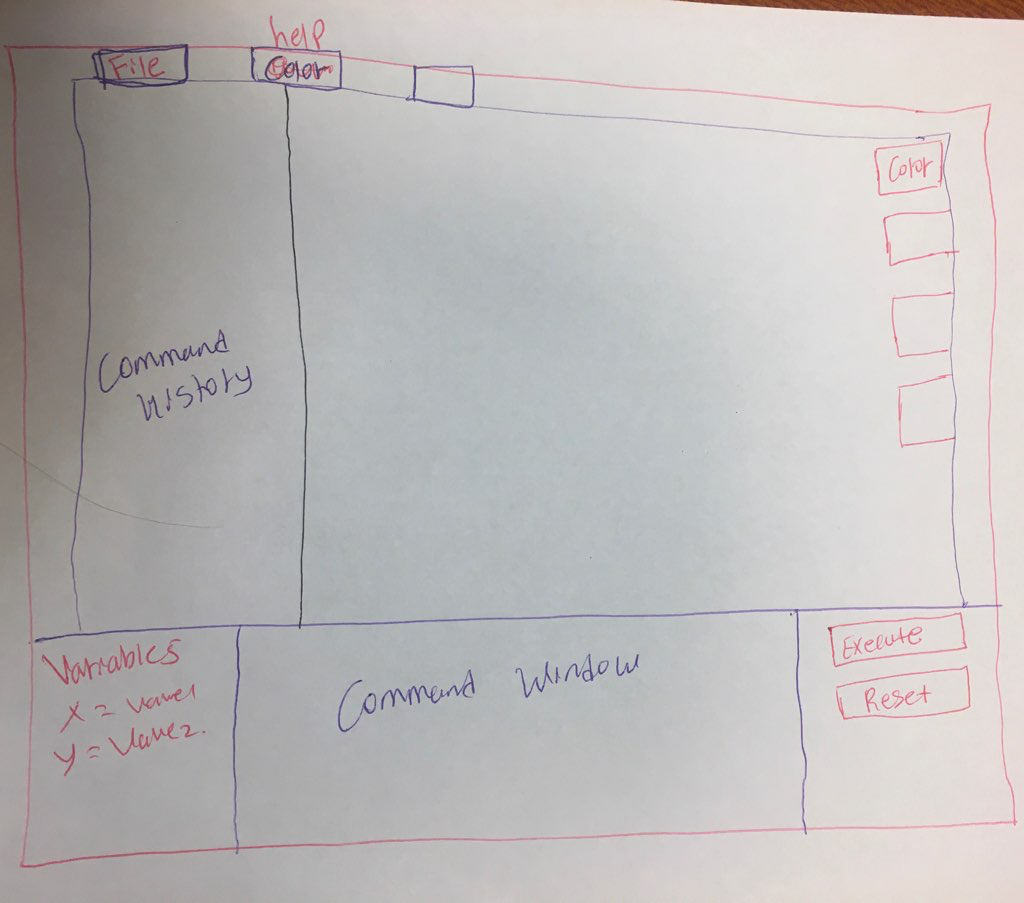 help
File
Color
Color
Command
History
Variables
X = Value1
Y = Value2.
Command Window
Execute
Reset